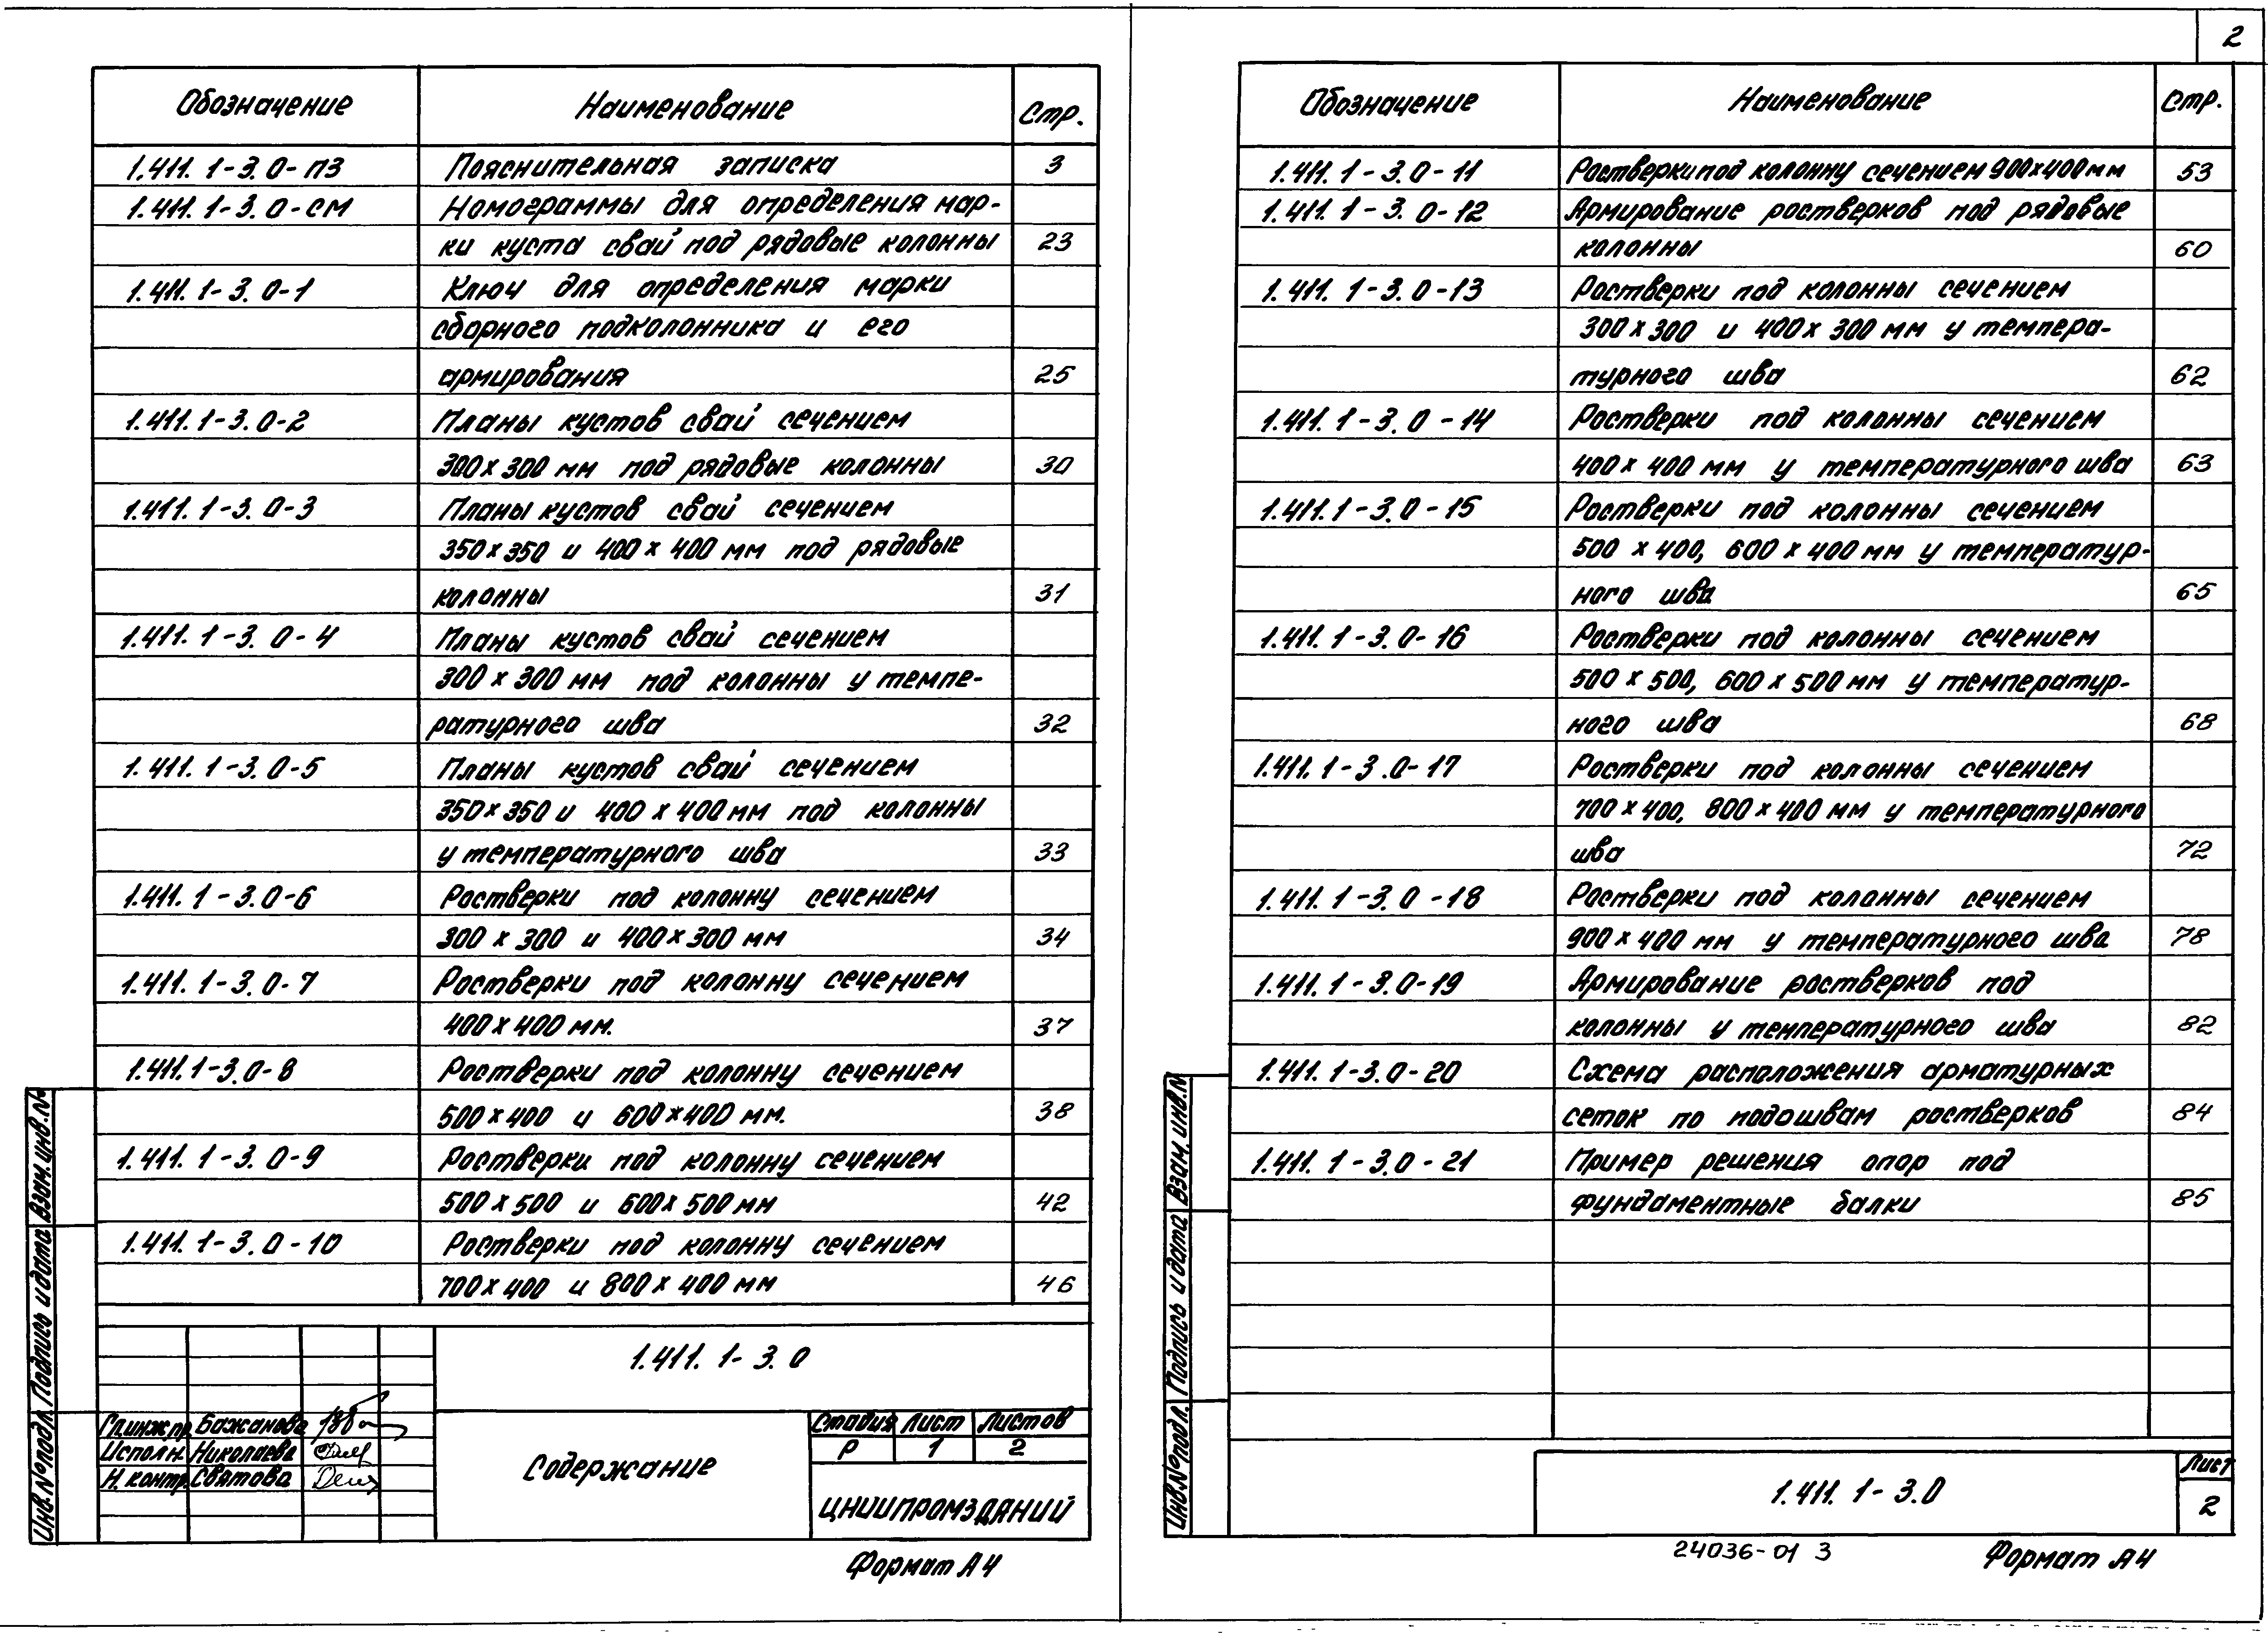 2
Обозначение Наименование Стр.
1.411.1-3.0-ПЗ Пояснительная записка 3
1.411.1-3.0-СМ Номограммы для определения мар-
ки куста свай под рядовые колонны 23
1.411.1-3.0-1 Ключ для определения марки
сборного подколонника и его
армирования 25
1.411.1-3.0-2 Планы кустов свай сечением
300х300 мм под рядовые колонны 30
1.411.1-3.0-3 Планы кустов свай сечением
350х350 и 400х400 мм под рядовые
колонны 31
1.411.1-3.0-4 Планы кустов свай сечением
300х300 мм под колонны у темпе-
ратурного шва 32
1.411.1-3.0-5 Планы кустов свай сечением
350х350 и 400х400 мм под колонны
у температурного шва 33
1.411.1-3.0-6 Ростверки под колонну сечением
300х300 и 400х300 мм 34
1.411.1-3.0-7 Ростверки под колонну сечением
400х400 мм. 37
1.411.1-3.0-8 Ростверки под колонну сечением
500х400 и 600х400 мм. 38
1.411.1-3.0-9 Ростверки под колонну сечением
500х500 и 600х500 мм 42
1.411.1-3.0-10 Ростверки под колонну сечением
700х400 и 800х400 мм 46
1.411.1-3.0
Гл.инж.пр. Бажанова
Исполн. Николаева
Н.контр. Святова
Содержание
Стадия Лист Листов
Р 1 2
ЦНИИПРОМЗДАНИЙ
Инв.№подл. Подпись и дата Взам.инв.№
Формат А4
Обозначение Наименование Стр.
1.411.1-3.0-11 Ростверки под колонну сечением 900х400мм 53
1.411.1-3.0-12 Армирование ростверков под рядовые
колонны 60
1.411.1-3.0-13 Ростверки под колонны сечением
300х300 и 400х300 мм у темпера-
турного шва 62
1.411.1-3.0-14 Ростверки под колонны сечением
400х400 мм у температурного шва 63
1.411.1-3.0-15 Ростверки под колонны сечением
500х400, 600х400 мм у температур-
ного шва 65
1.411.1-3.0-16 Ростверки под колонны сечением
500х500, 600х500 мм у температур-
ного шва 68
1.411.1-3.0-17 Ростверки под колонны сечением
700х400, 800х400 мм у температурного
шва 72
1.411.1-3.0-18 Ростверки под колонны сечением
900х400 мм у температурного шва 78
1.411.1-3.0-19 Армирование ростверков под
колонны у температурного шва 82
1.411.1-3.0-20 Схема расположения арматурных
сеток по подошвам ростверков 84
1.411.1-3.0-21 Пример решения опор под
фундаментные балки 85
Инв.№подл. Подпись и дата Взам.инв.№
1.411.1-3.0
Лист
2
24036-01 3
Формат А4